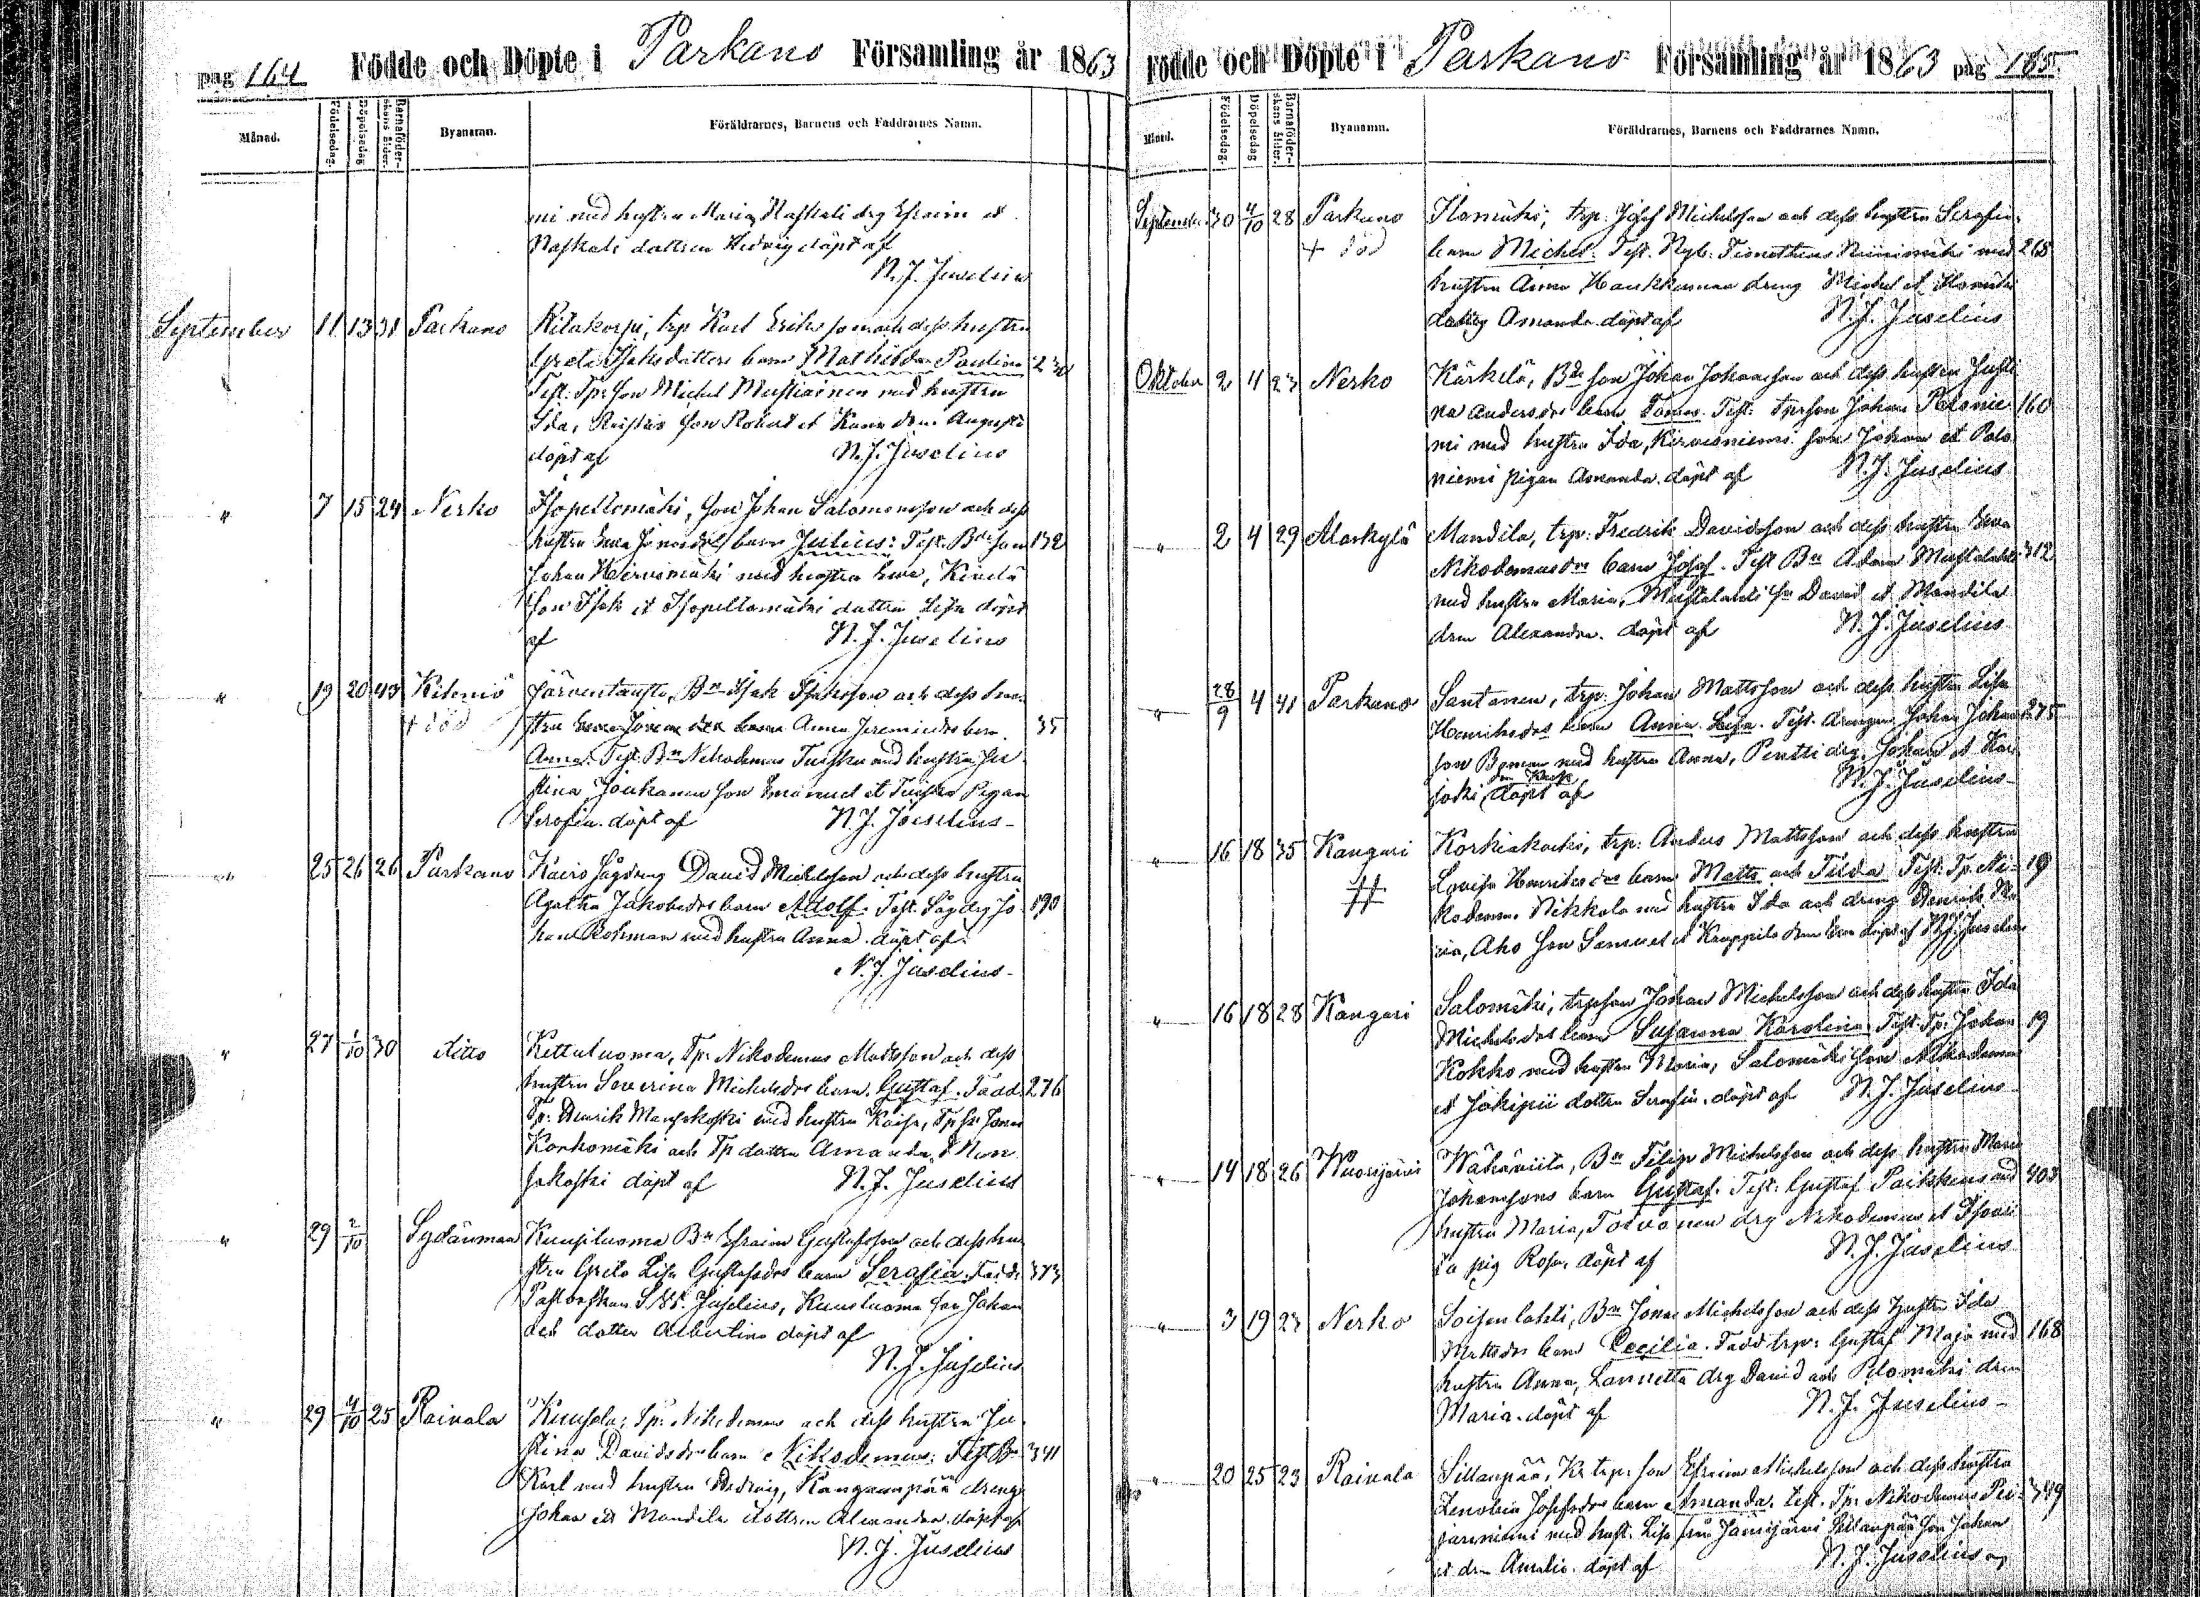 pag 164 Födde och Döpte i Parkano Församling år 1863
Månad. Födelsedag. Döpelsedag Barnaföderskans ålder. Byanamn. Föräldrarnes, Barnens och Faddrarnes Namn.
mi med hustru Maria, Raskali drg Efraim et
Raskali dottren Hedvig döpt af
N. J. Juselius
September 11 13 31 Parkano Ritakorpi, trp Karl Eriksson och dess hustru
Greta Isaksdotters barn Mathilda Paulina
Test. Tp: son Michel Mustiainen med hustru
Ida, son Robert et Augusta
döpt af N. J. Juselius
" 7 15 24 Nerko Isopellomäki, son Johan Salomonsson och dess
hustru Eva barn Julius: Test. Bde son 132
Johan Hirvimäki med hustru Eva, Kivelä
son Isak et Isopellomäki dottren Lisa döpt
af N. J. Juselius
" 19 20 43 Kihniö Järventausta, Bn Isak Isaksson och dess hu-
+ död stru Anna Jeremiedrs barn 35
Anna. Test. Bn Nikodemus Tuisku med hustru Ju
stina Joukanen son Emanuel et Tuisku Pigan
Serafia. döpt af N. J. Juselius
" 25 26 26 Parkano Kairo Sågdreng David Michelsson och dess hustru
Agatha Jakobsdrs barn Adolf. Test. Sågdrg Jo- 190
han Rohman med hustru Anna döpt af
N. J. Juselius
" 27 1/10 30 ditto Kettuluoma, Tp. Nikodemus Mattsson och dess
hustru Severina Michelsdrs barn Gustaf. Fadd. 276
Tp. Henrik Mansikoski med hustru Kaisa, Tp. sn Jonas
Korkomäki och Tp dottren Amanda Man
sikoski döpt af N. J. Juselius
" 29 2/10 Sydänmaa Kuusiluoma Bn Efraim Gustafsson och dess hu
stru Greta Lisa Gustafsdrs barn Serafia. Fadd. 373
Pastorskan Juselius, Kuusluoma son Johan
och dotter Albertina döpt af
N. J. Juselius
" 29 4/10 25 Rainala Kuusela, Tp. Nikodemus och dess hustru Ju
stina Davidsdrs barn Nikodemus: Test Bn 341
Karl med hustru Hedvig, Kangaanpää dreng
Johan et Mandila dottren Alexandra. döpt af
N. J. Juselius
Födde och Döpte i Parkano Församling år 1863 pag 165.
Månad. Födelsedag. Döpelsedag Barnaföderskans ålder. Byanamn. Föräldrarnes, Barnens och Faddrarnes Namn.
September 30 4/10 28 Parkano trp: Josef Michelsson och dess hustru Serafia
+ död barn Michel. Test. Nyb. Timotheus Niinimäki med 268
hustru Anna, dreng Michel et
Amanda döpt af N. J. Juselius
Oktober 2 4 23 Nerko Kärkelä, Bde son Johan Johansson och dess hustru Justi
na Andersdrs barn Tomas. Test: tprson Johan Polonie- 160
mi med hustru Ida, Kirvesniemi son Johan et Polo
niemi pigan Amanda. döpt af N. J. Juselius
" 2 4 29 Alaskylä Mandila, trp: Fredrik Davidsson och dess hustru Eva
Nikodemusdrs barn Josef. Test Bn Adam Mustalahti 312
med hustru Maria, Mustalahti sn David et Mandila
drn Alexandra. döpt af N. J. Juselius
" 28/9 4 41 Parkano Santanen, trp: Johan Mattsson och dess hustru Lisa
Henriksdrs barn Anna Lisa. Test. drengen Johan Johans- 275
son Boman med hustru Anna, Pentti drg Johan et Kar
joki, drn döpt af N. J. Juselius
" 16 18 35 Kangari Korkiakoski, trp: Anders Mattsson och dess hustru
++ Lovisa Henriksdrs barn Matts och Tilda Test. Tp. Ni- 19
kodemus Nikkola med hustru Ida och dreng Henrik
Aho son Samuel et Kauppila drn Eva döpt af N. J. Juselius
" 16 18 28 Kangari Salomäki, trpson Johan Michelsson och dess hustru Ida
Michelsdrs barn Susanna Karolina. Test. Tp. Johan 19
Kokko med hustru Maria, Salomäki son Nikodemus
et Jokipii dottren Serafia. döpt af N. J. Juselius
" 14 18 26 Wuorijärvi Wähäniitu, Bn Filip Michelsson och dess hustru Maria
Johanssons barn Gustaf. Test: Gustaf Paikkens med 403
hustru Maria, Toivonen drg Nikodemus et
pig Rosa. döpt af N. J. Juselius
" 3 19 23 Nerko Soisenlahti, Bn Jonas Michelsson och dess hustru Ida
Mattsdrs barn Cecilia. Fadd trp: Gustaf Maja med 168
hustru Anna, Lannetta drg David och Pelomäki drn
Maria. döpt af N. J. Juselius
" 20 25 23 Rainala Sillanpää, Kr. trp: son Efraim Michelsson och dess hustru
Zenobia Josefsdrs barn Amanda. test. Tp. Nikodemus Pei- 349
jarniemi med hust. Lisa från Jämijärvi Sillanpää son Johan
et drn Amalia. döpt af N. J. Juselius